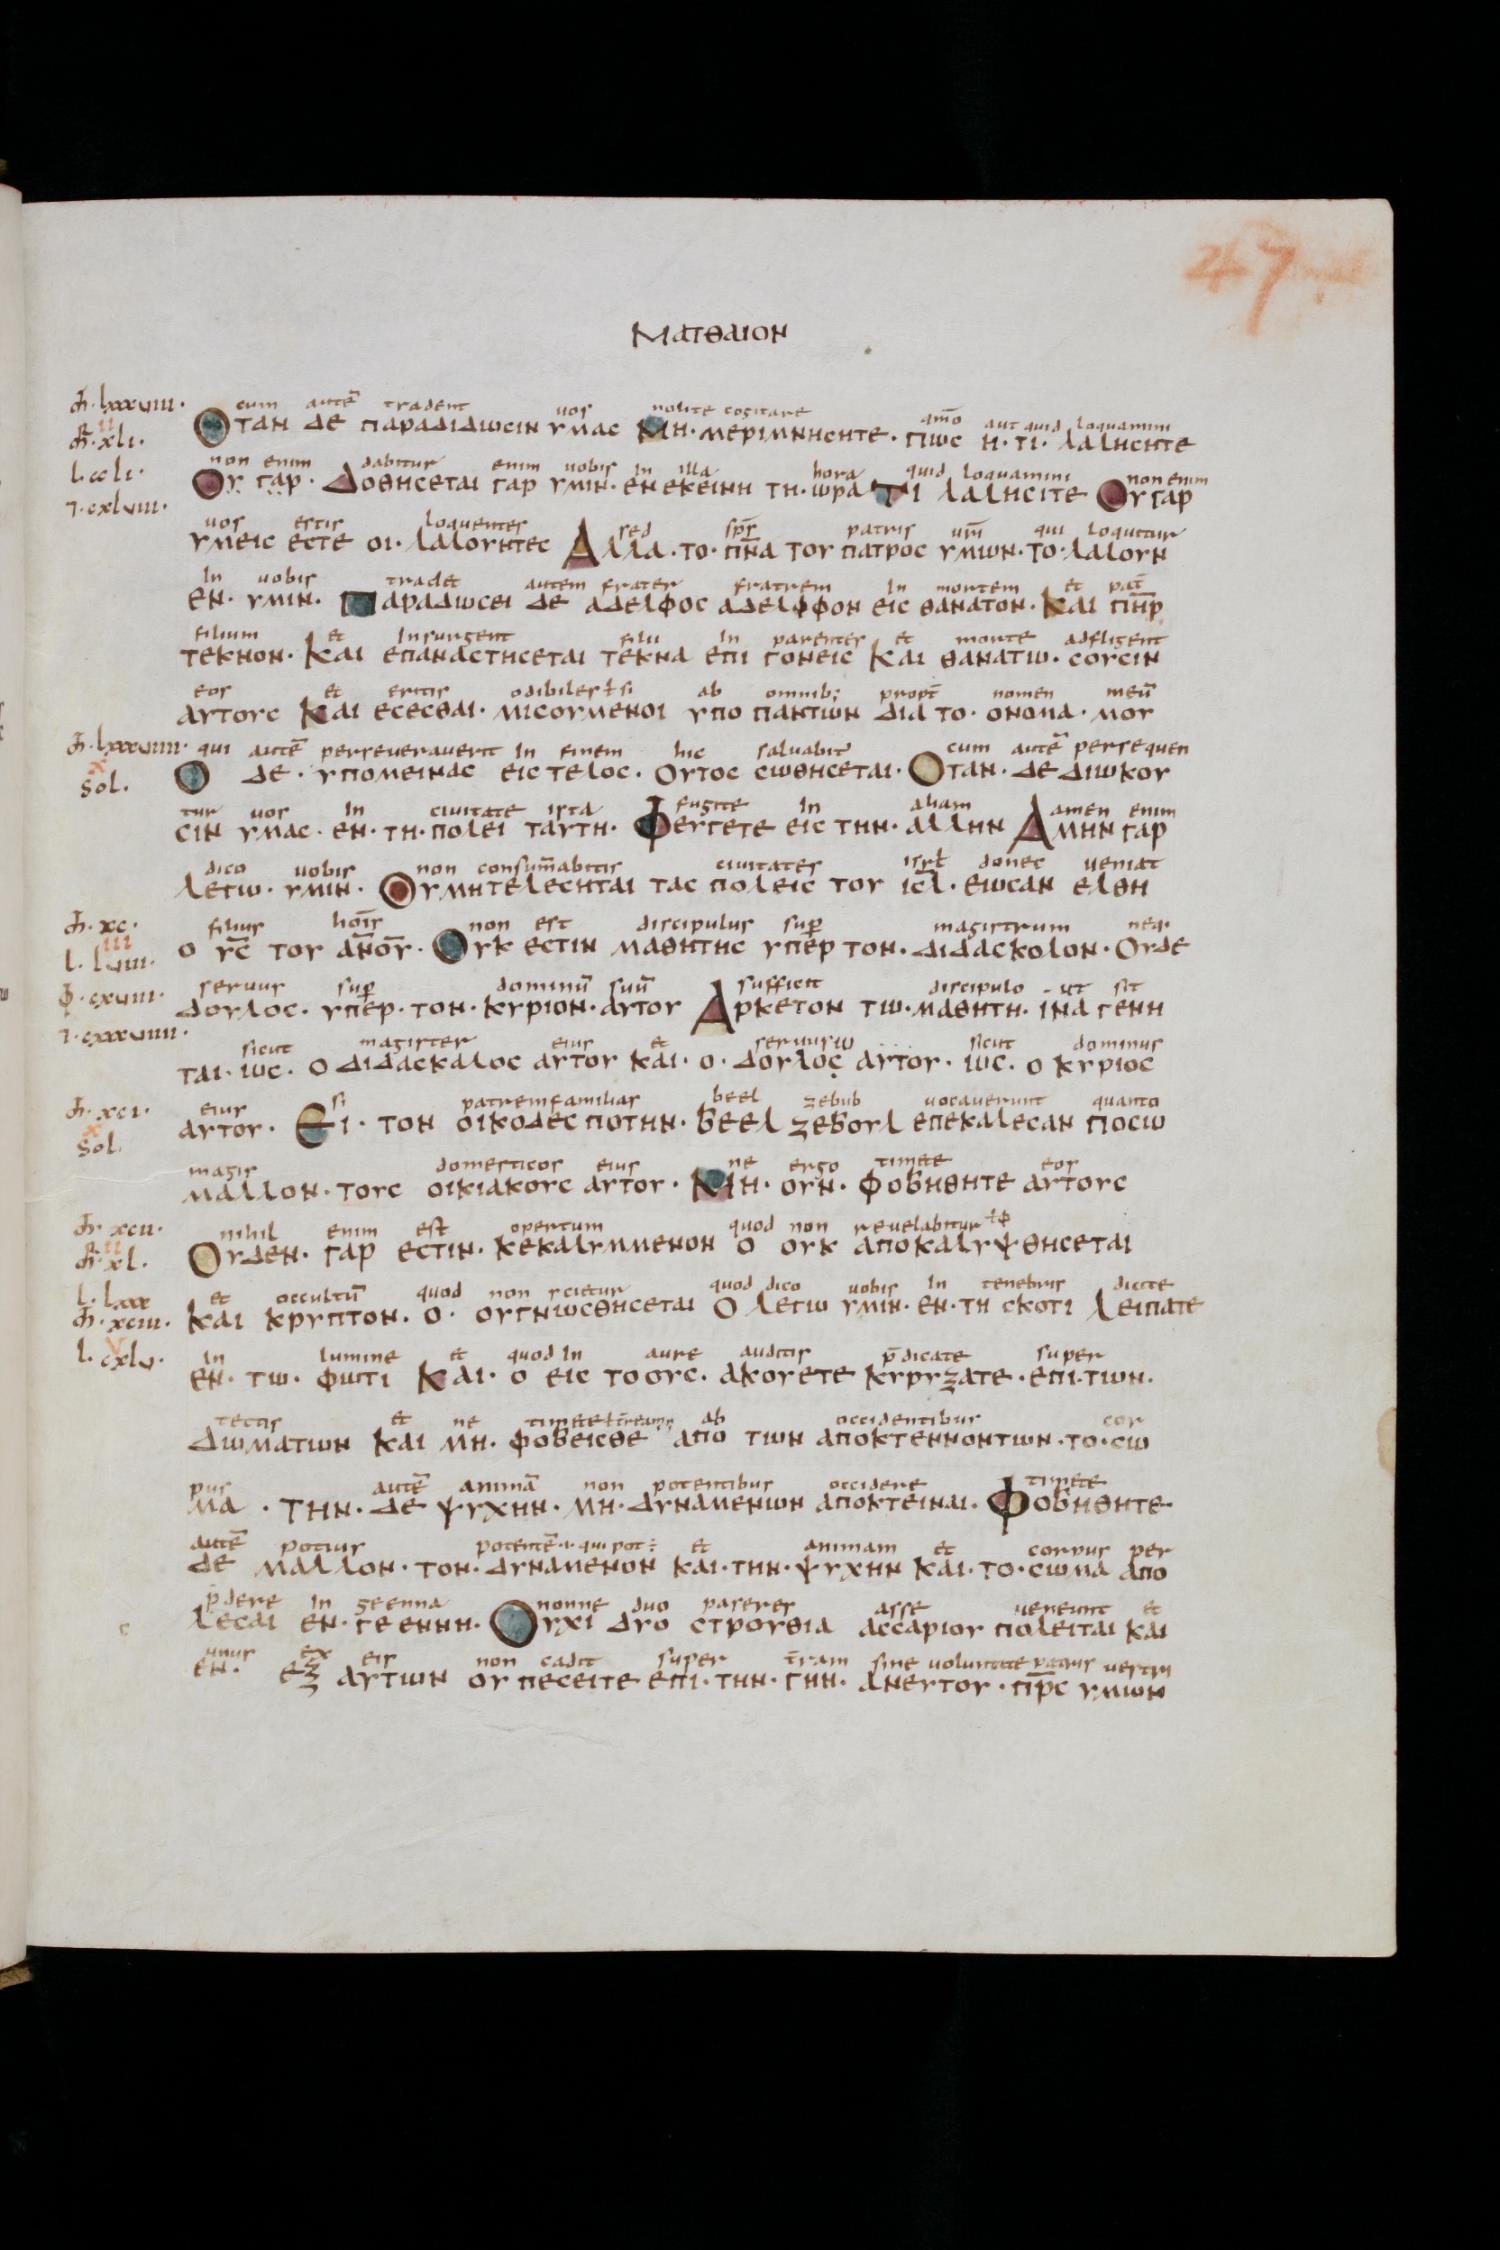 47
ΜΑΤΘΑΙΟΝ
cum autē tradent uos nolite cogitare qmō aut quid loquamini
ΟΤΑΝ ΔΕ ΠΑΡΑΔΙΔΩCΙΝ ΥΜΑC ΜΗ· ΜΕΡΙΜΝΗCΗΤΕ· ΠΩC Η· ΤΙ· ΛΑΛΗCΗΤΕ
non enim dabitur enim uobis in illa hora quid loquamini non enim
ΟΥ ΓΑΡ· ΔΟΘΗCΕΤΑΙ ΓΑΡ ΥΜΙΝ· ΕΝ ΕΚΕΙΝΗ ΤΗ· ΩΡΑ ΤΙ ΛΑΛΗCΙΤΕ ΟΥ ΓΑΡ
uos estis loquentes sed sp̄s patris ur̄i qui loquitur
ΥΜΕΙC ΕCΤΕ ΟΙ· ΛΑΛΟΥΝΤΕC ΑΛΛΑ· ΤΟ· Π̄Ν̄Α ΤΟΥ ΠΑΤΡΟC ΥΜΩΝ· ΤΟ· ΛΑΛΟΥΝ
in uobis tradet autem frater fratrem in mortem et pat̄
ΕΝ· ΥΜΙΝ· ΠΑΡΑΔΩCΕΙ ΔΕ ΑΔΕΛΦΟC ΑΔΕΛΦΦΟΝ ΕΙC ΘΑΝΑΤΟΝ· ΚΑΙ Π̄Η̄Ρ
filium et insurgent filii in parentes et morte adfligent
ΤΕΚΝΟΝ· ΚΑΙ ΕΠΑΝΑCΤΗCΕΤΑΙ ΤΕΚΝΑ ΕΠΙ ΓΟΝΕΙC ΚΑΙ ΘΑΝΑΤΩ· CΟΥCΙΝ
eos et eritis odibiles ł si ab omnib; propt̄ nomen meū
ΑΥΤΟΥC ΚΑΙ ΕCΕCΘΑΙ· ΜΙCΟΥΜΕΝΟΙ ΥΠΟ ΠΑΝΤΩΝ ΔΙΑ ΤΟ· ΟΝΟΜΑ· ΜΟΥ
qui autē perseuerauerit in finem hic saluabit̄ cum autē persequen
Ο ΔΕ· ΥΠΟΜΕΙΝΑC ΕΙC ΤΕΛΟC· ΟΥΤΟC CΩΘΗCΕΤΑΙ· ΟΤΑΝ· ΔΕ ΔΙΩΚΟΥ
tur uos in ciuitate ista fugite in aliam amen enim
CΙΝ ΥΜΑC· ΕΝ· ΤΗ· ΠΟΛΕΙ ΤΑΥΤΗ· ΦΕΥΓΕΤΕ ΕΙC ΤΗΝ· ΑΛΛΗΝ ΑΜΗΝ ΓΑΡ
dico uobis non consum̄abitis ciuitates isrł donec ueniat
ΛΕΓΩ· ΥΜΙΝ· ΟΥΜΗΤΕΛΕCΗΤΑΙ ΤΑC ΠΟΛΕΙC ΤΟΥ ΙC̄Λ· ΕΩCΑΝ ΕΛΘΗ
filius hōis non est discipulus sup̄ magistrum neq·
Ο ῩC̄ ΤΟΥ ΑΝ̄ΟῩ· ΟΥΚ ΕCΤΙΝ ΜΑΘΗΤΗC ΥΠΕΡ ΤΟΝ· ΔΙΔΑCΚΟΛΟΝ· ΟΥΔΕ
seruus sup̄ dominū suū sufficit discipulo ut sit
ΔΟΥΛΟC· ΥΠΕΡ· ΤΟΝ· ΚΥΡΙΟΝ· ΑΥΤΟΥ ΑΡΚΕΤΟΝ ΤΩ· ΜΑΘΗΤΗ· ΙΝΑ ΓΕΝΗ
sicut magister eius et seruus ω sicut dominus
ΤΑΙ· ΩC· Ο ΔΙΔΑCΚΑΛΟC ΑΥΤΟΥ ΚΑΙ· Ο· ΔΟΥΛΟC ΑΥΤΟΥ· ΩC· Ο ΚΥΡΙΟC
eius si patremfamilias beel zebub uocauerunt quanto
ΑΥΤΟΥ· ΕΙ· ΤΟΝ ΟΙΚΟΔΕCΠΟΤΗΝ· ΒΕΕΛ ΖΕΒΟΥΛ ΕΠΕΚΑΛΕCΑΝ ΠΟCΩ
magis domesticos eius ne ergo timete eos
ΜΑΛΛΟΝ· ΤΟΥC ΟΙΚΙΑΚΟΥC ΑΥΤΟΥ· ΜΗ· ΟΥΝ· ΦΟΒΗΘΗΤΕ ΑΥΤΟΥC
nihil enim est opertum quod non reuelabitur
ΟΥΔΕΝ· ΓΑΡ ΕCΤΙΝ· ΚΕΚΑΛΥΜΜΕΝΟΝ Ο ΟΥΚ ΑΠΟΚΑΛΥΨΘΗCΕΤΑΙ
et occultū quod non scietur quod dico uobis in tenebris dicite
ΚΑΙ ΚΡΥΠΤΟΝ· Ο· ΟΥΓΝΩCΘΗCΕΤΑΙ Ο ΛΕΓΩ ΥΜΙΝ· ΕΝ· ΤΗ CΚΟΤΙ ΛΕΙΠΑΤΕ
in lumine et quod in aure auditis p̄dicate super
ΕΝ· ΤΩ· ΦΩΤΙ ΚΑΙ· Ο ΕΙC ΤΟ ΟΥC· ΑΚΟΥΕΤΕ ΚΥΡΥΞΑΤΕ· ΕΠΙ· ΤΩΝ·
tectis et ne timete ab occidentibus cor
ΔΩΜΑΤΩΝ ΚΑΙ ΜΗ· ΦΟΒΕΙCΘΕ ΑΠΟ ΤΩΝ ΑΠΟΚΤΕΝΝΟΝΤΩΝ· ΤΟ· CΩ
pus autē animā non potentibus occidere timete
ΜΑ· ΤΗΝ· ΔΕ ΨΥΧΗΝ· ΜΗ· ΔΥΝΑΜΕΝΩΝ ΑΠΟΚΤΕΙΝΑΙ· ΦΟΒΗΘΗΤΕ
autē potius potentē qui pot et animam et corpus per
ΔΕ ΜΑΛΛΟΝ· ΤΟΝ· ΔΥΝΑΜΕΝΟΝ ΚΑΙ· ΤΗΝ· ΨΥΧΗΝ ΚΑΙ· ΤΟ· CΩΜΑ ΑΠΟ
dere in geenna nonne duo paseres asse ueneunt et
ΛΕCΑΙ ΕΝ· ΓΕΕΝΝΗ· ΟΥΧΙ ΔΥΟ CΤΡΟΥΘΙΑ ΑCCΑΡΙΟΥ ΠΟΛΕΙΤΑΙ ΚΑΙ
unus ex eis non cadit super t̄ram sine uoluntate patris uestri
ΕΝ· ΕΞ ΑΥΤΩΝ ΟΥ ΠΕCΕΙΤΕ ΕΠΙ· ΤΗΝ· ΓΗΝ· ΑΝΕΥΤΟΥ· Π̄Ρ̄C ΥΜΩΝ
lxxxuiii·
II
xli·
l·ccli·
cxluiii·
lxxxuiiii·
X
sol·
xc·
III
l· luiii·
cxuiii·
cxxxuiiii·
xci·
X
sol·
xcii·
II
xl·
l· lxxx
xciii·
V
l· cxlu·